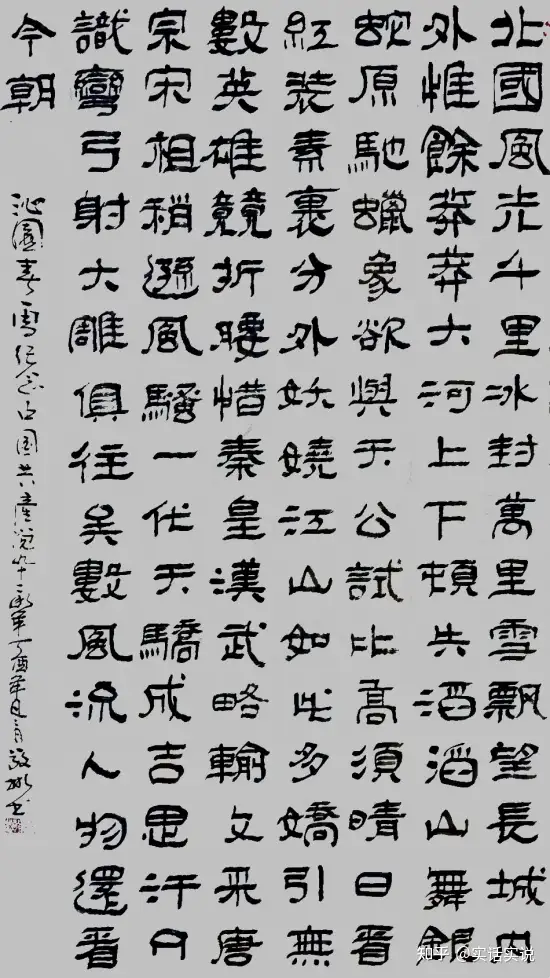 北國風光千里冰封萬里雪飄望長城內
外惟餘莽莽大河上下頓失滔滔山舞銀
蛇原馳蠟象欲與天公試比高須晴日看
紅裝素裏分外妖嬈江山如此多嬌引無
數英雄競折腰惜秦皇漢武略輸文采唐
宗宋祖稍遜風騷一代天驕成吉思汗只
識彎弓射大雕俱往矣數風流人物還看
今朝
沁園春雪纪念中国共產党丁酉年书
知乎 @实话实说